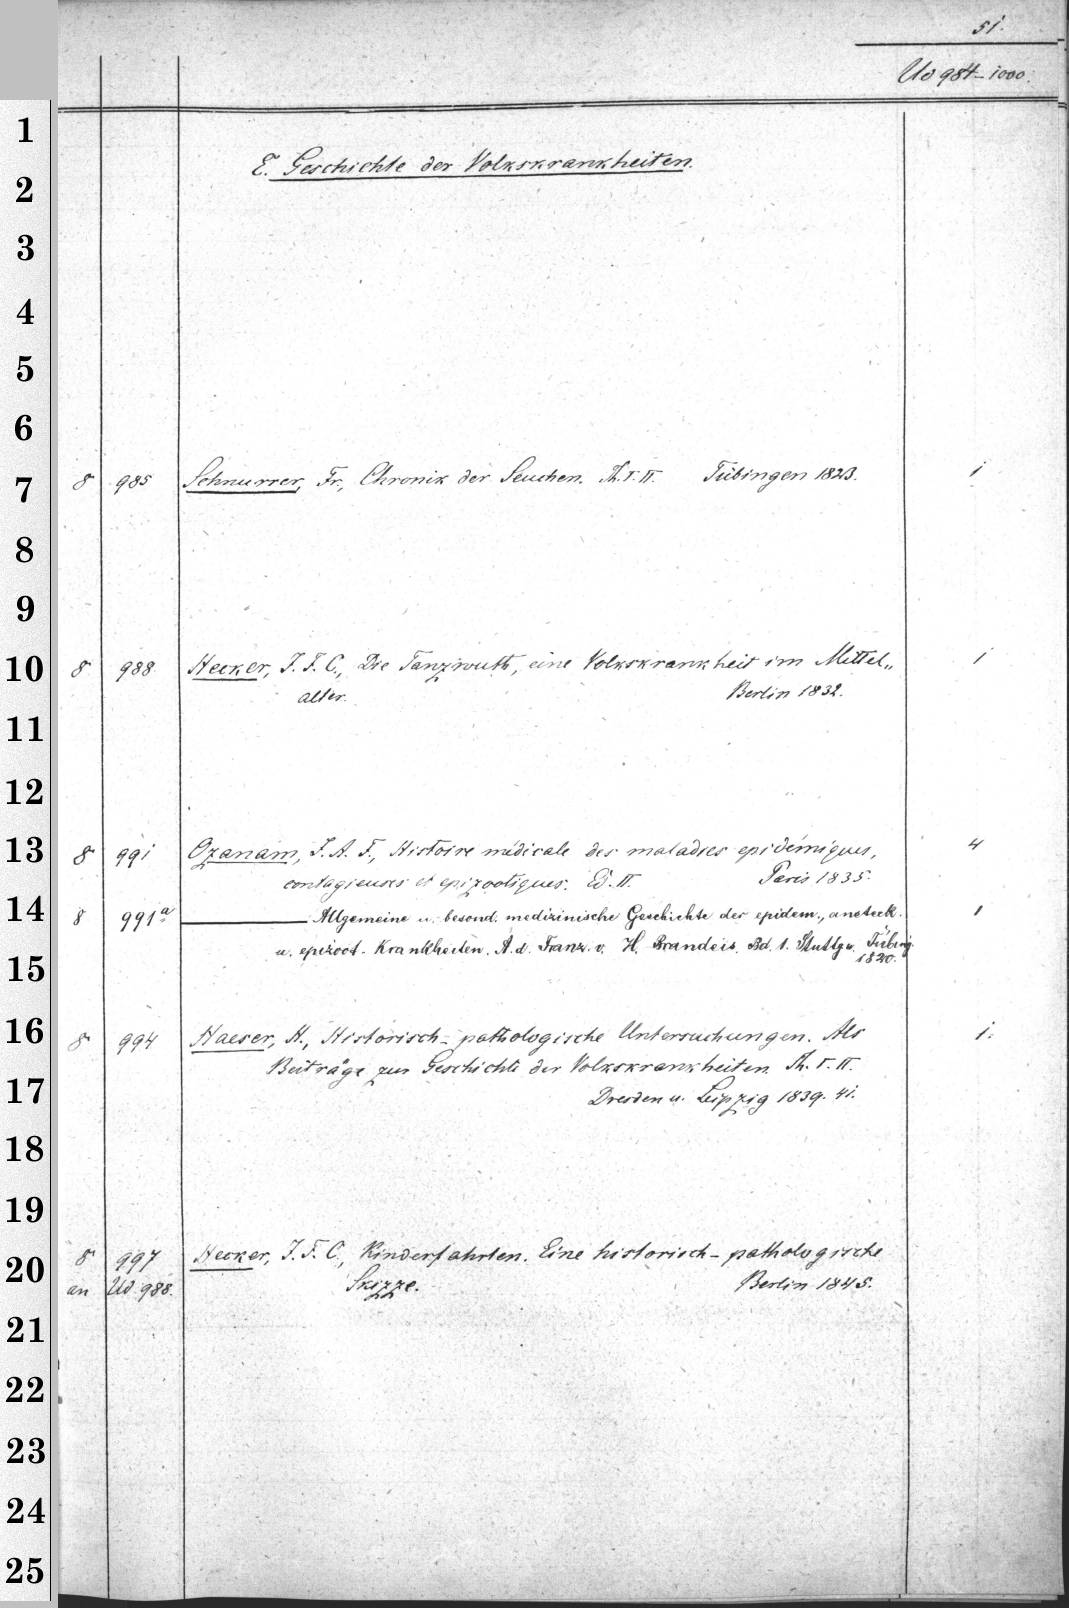 51.
Ud 984–1000.
1
E. Geschichte der Volkskrankheiten.
2
3
4
5
6
7
8 985 Schnurrer, Fr., Chronik der Seuchen. Th. I. II. Tübingen 1823. 1
8
9
10
8 988 Hecker, J. F. C., Die Tanzwuth, eine Volkskrankheit im Mittel„ 1
alter. Berlin 1832.
11
12
13
8 991 Ozanam, J. A. F., Histoire médicale des maladies epidémiques, 4
contagieuses et epizootiques. Ed. II. Paris 1835.
14
8 991a ——— Allgemeine u. besond. medizinische Geschichte der epidem., ansteck. 1
u. epizoot. Krankheiten. A. d. Franz. v. H. Brandeis. Bd. 1. Stuttg u. Tübing.
1820.
15
16
8 994 Haeser, H., Historisch-pathologische Untersuchungen. Als 1.
Beiträge zur Geschichte der Volkskrankheiten. Th. I. II.
17
Dresden u. Leipzig 1839. 41.
18
19
20
8 997 Hecker, J. F. C., Kinderfahrten. Eine historisch-pathologische
an Ud 988. Skizze. Berlin 1845.
21
22
23
24
25